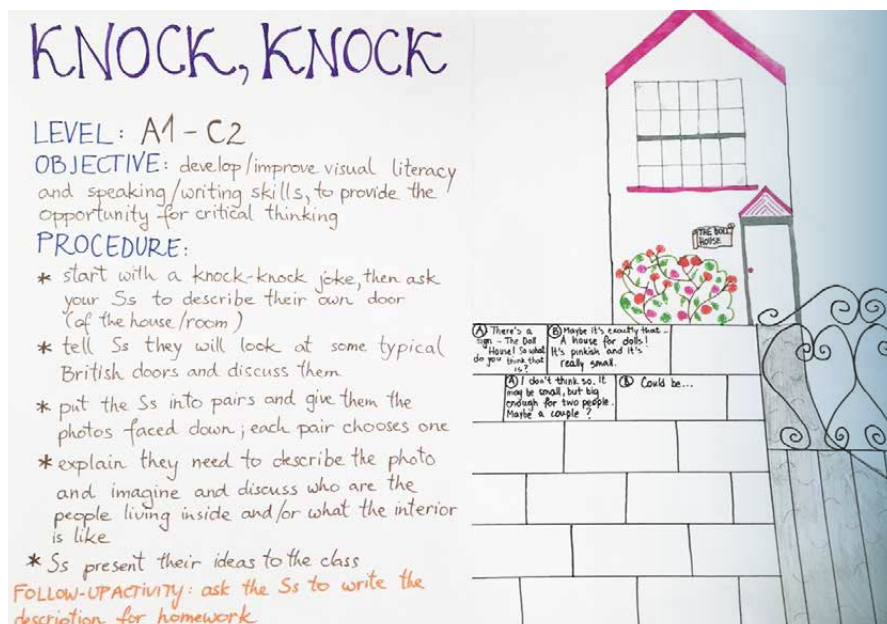 KNOCK, KNOCK
LEVEL: A1 - C2
OBJECTIVE: develop/improve visual literacy
and speaking/writing skills, to provide the
opportunity for critical thinking
PROCEDURE:
* start with a knock-knock joke, then ask
your Ss to describe their own door
(of the house/room)
* tell Ss they will look at some typical
British doors and discuss them
* put the Ss into pairs and give them the
photos faced down; each pair chooses one
* explain they need to describe the photo
and imagine and discuss who are the
people living inside and/or what the interior
is like
* Ss present their ideas to the class
FOLLOW-UP ACTIVITY: ask the Ss to write the
description for homework
THE DOLL
HOUSE
A There's a
sign - The Doll
House! So what
do you think that
is?
B Maybe it's exactly that -
A house for dolls!
It's pinkish and it's
really small.
A I don't think so. It
may be small, but big
enough for two people.
Maybe a couple?
B Could be...